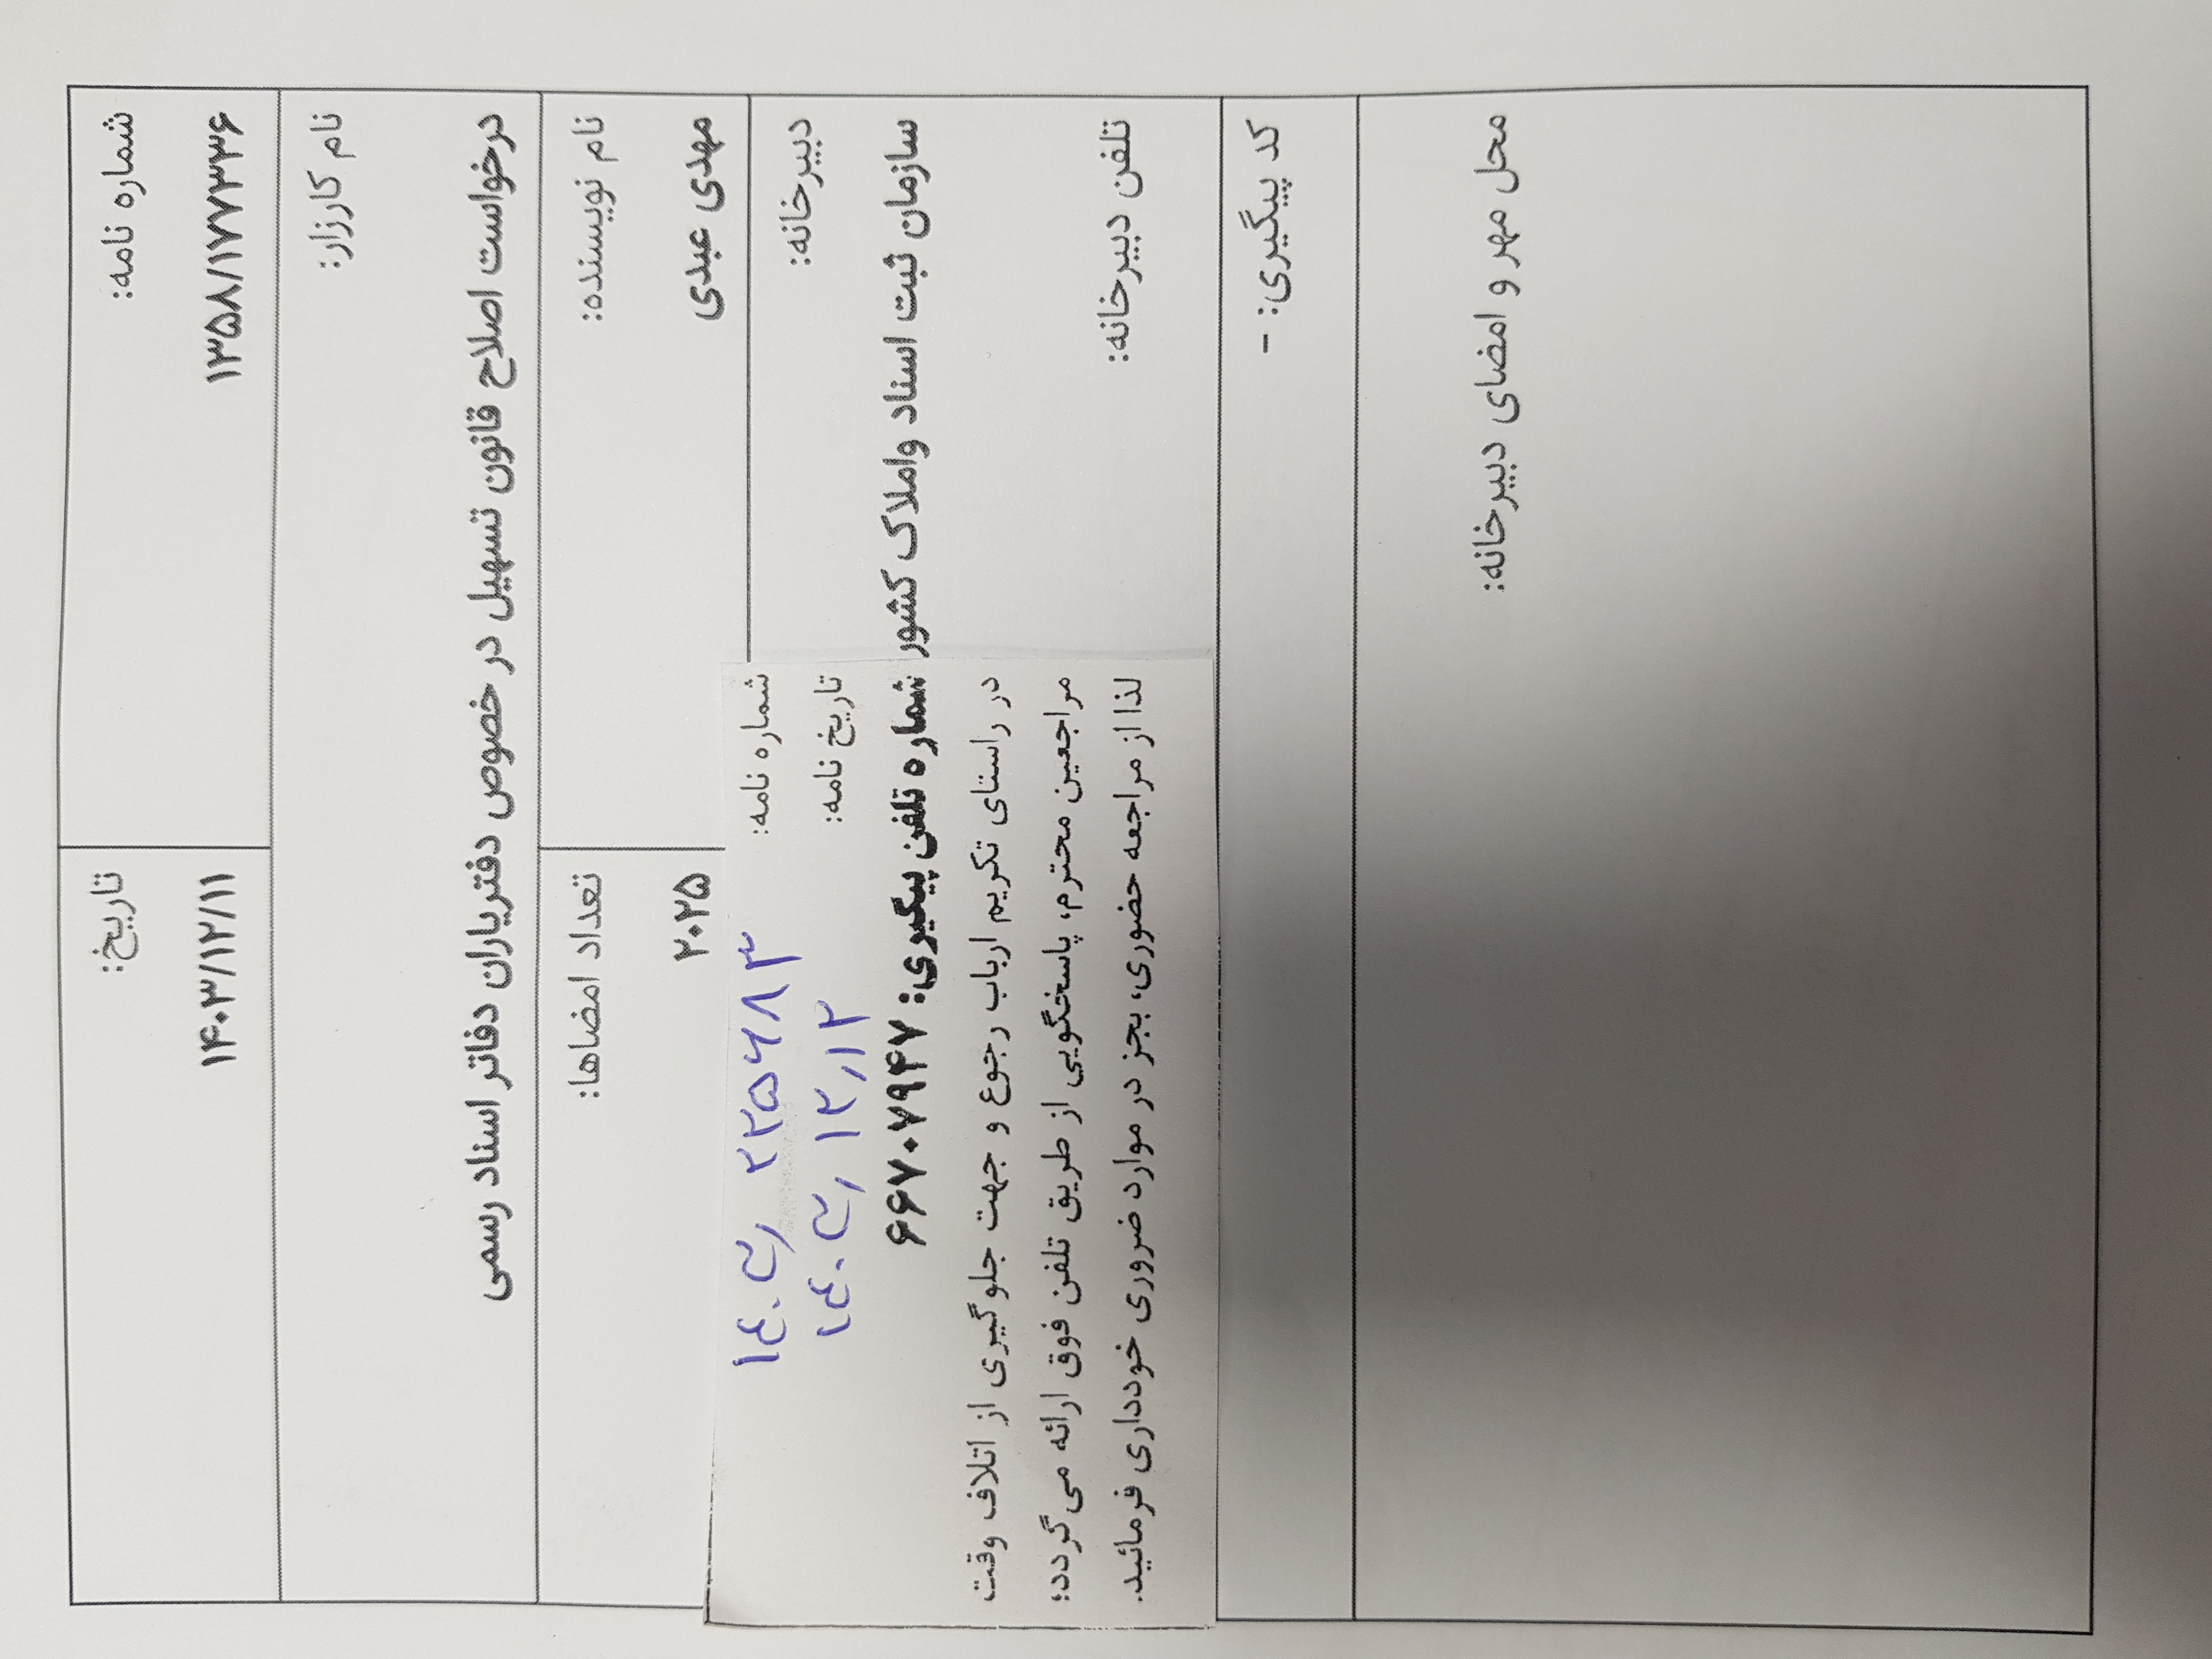 شماره نامه:
۱۳۵۸/۱۷۷۳۳۶
تاریخ:
۱۴۰۳/۱۲/۱۱
نام کارزار:
درخواست اصلاح قانون تسهیل در خصوص دفتریاران دفاتر اسناد رسمی
نام نویسنده:
مهدی عبدی
تعداد امضاها:
۲۰۲۵
دبیرخانه:
سازمان ثبت اسناد واملاک کشور
تلفن دبیرخانه:
شماره نامه: ۱۴۰۳/۲۲۵۶۸۳
تاریخ نامه: ۱۴۰۳/۱۲/۱۲
شماره تلفن پیگیری: ۶۶۷۰۷۹۴۷
در راستای تکریم ارباب رجوع و جهت جلوگیری از اتلاف وقت
مراجعین محترم، پاسخگویی از طریق تلفن فوق ارائه می گردد؛
لذا از مراجعه حضوری، بجز در موارد ضروری خودداری فرمائید.
کد پیگیری: -
محل مهر و امضای دبیرخانه: